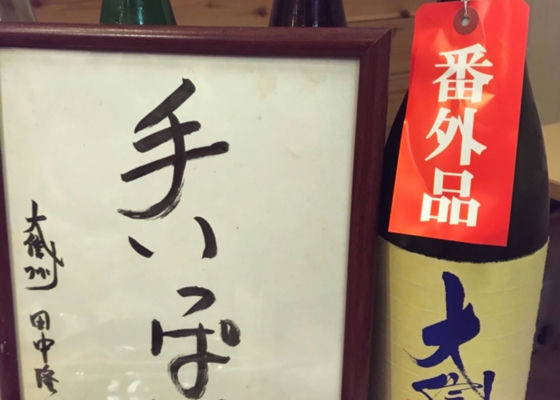 手いっぽ
大信州
田中隆
番外品
大信